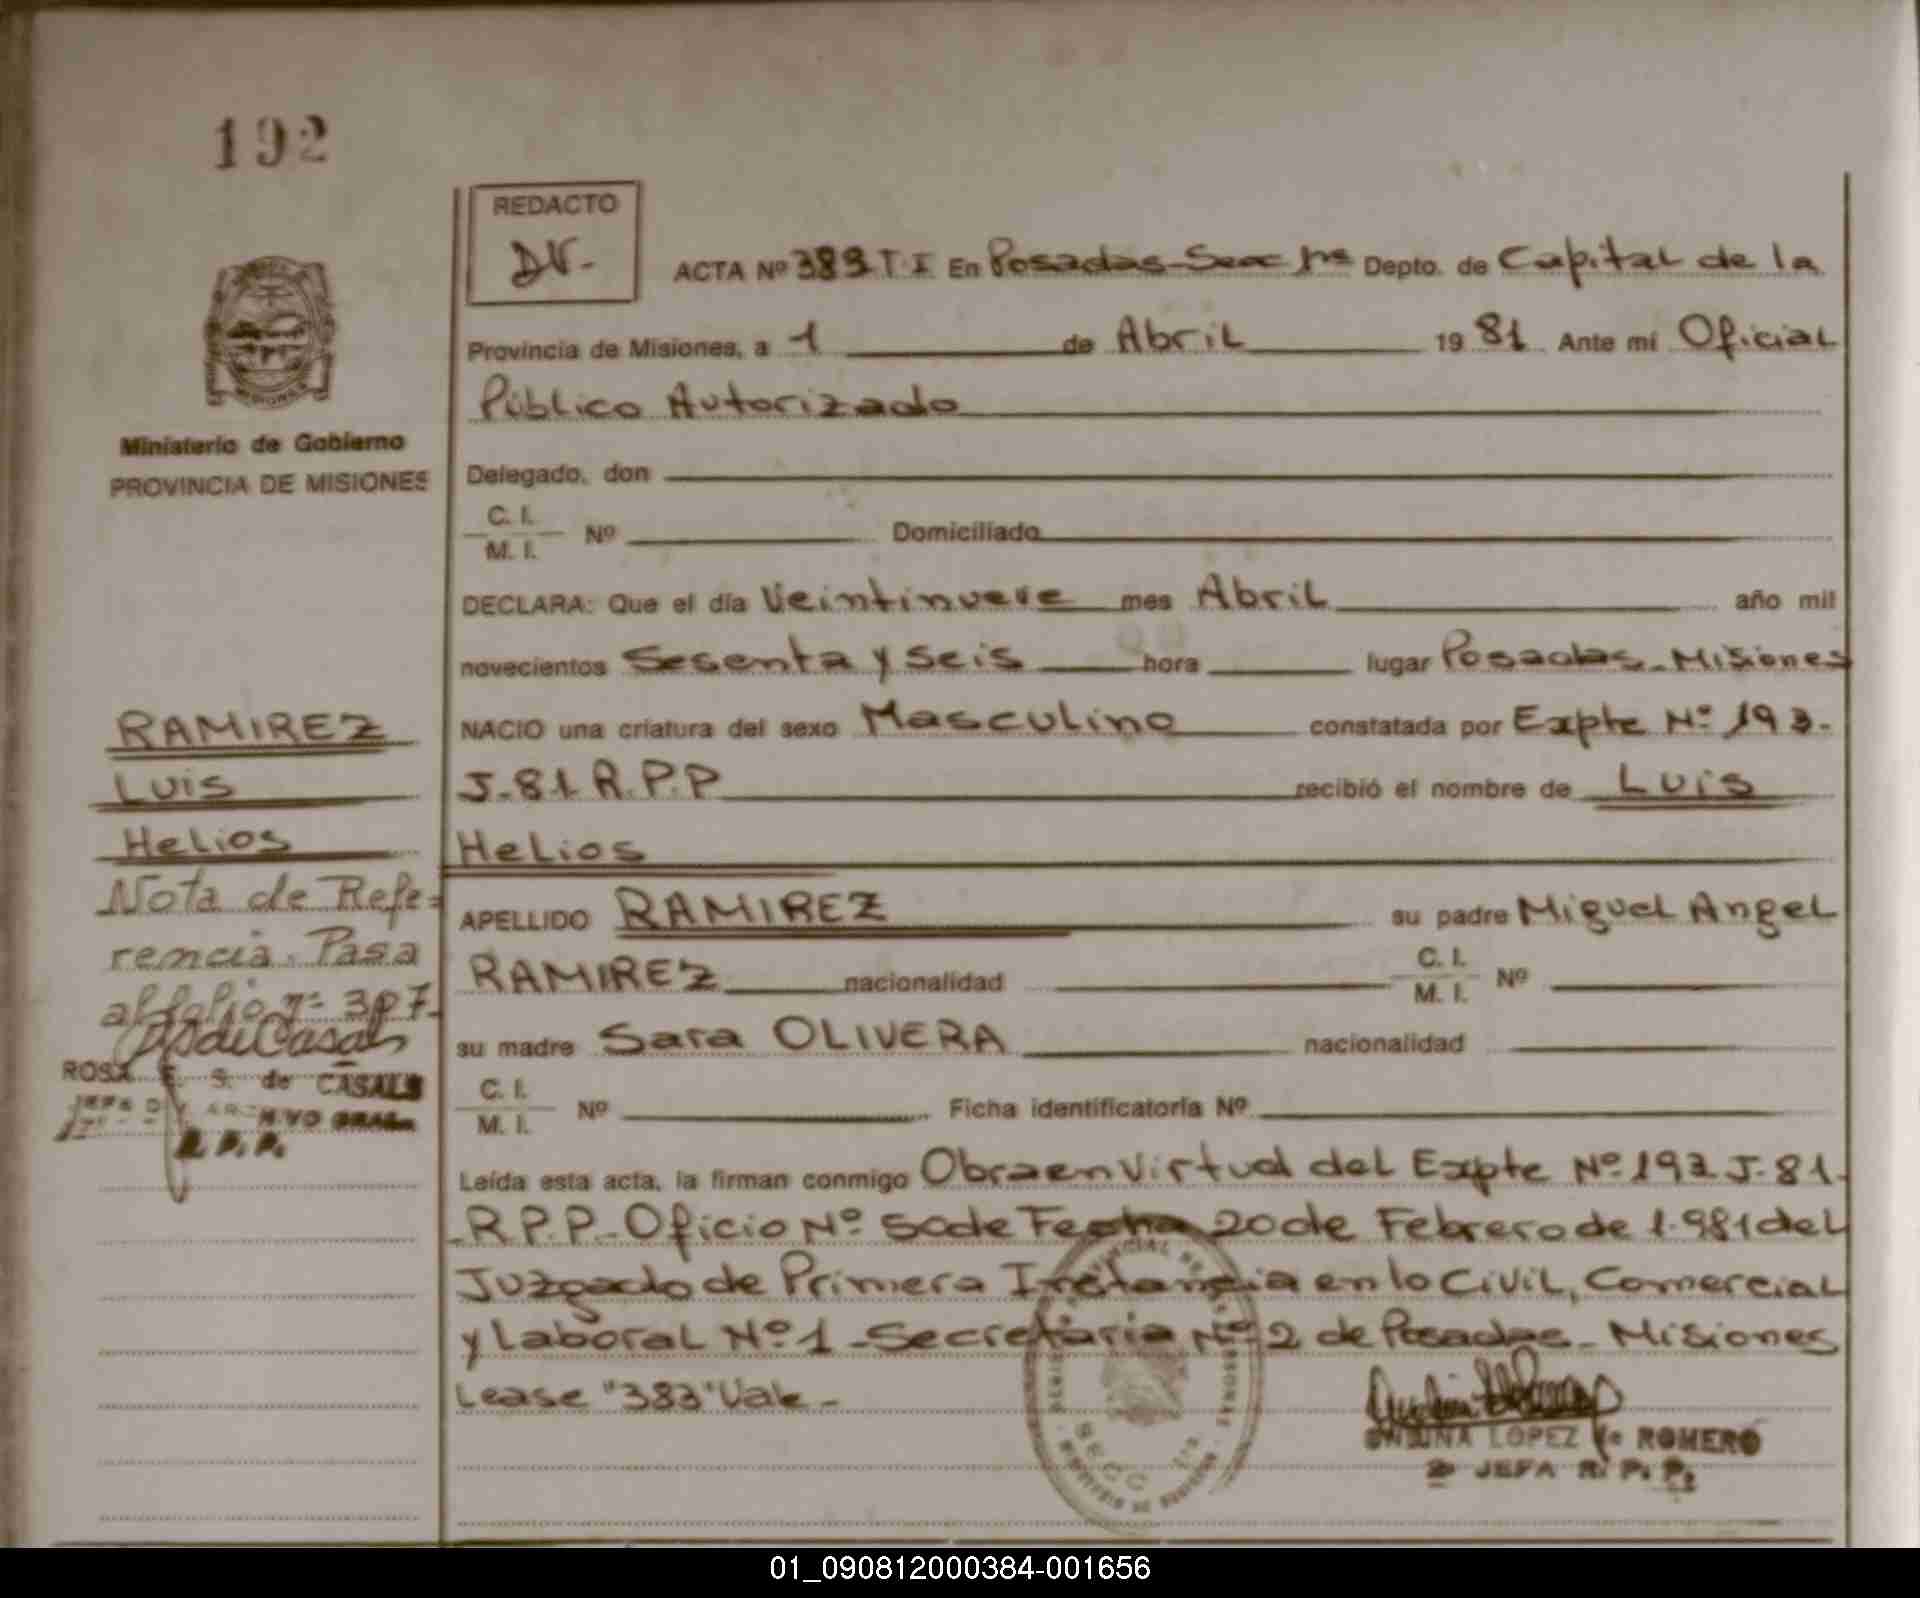 192
REDACTO
DV.-
ACTA Nº 383 T.I En Posadas-Secc 1ra Depto. de Capital de la
Provincia de Misiones, a 1 de Abril 1981 Ante mí Oficial
Público Autorizado
Ministerio de Gobierno
PROVINCIA DE MISIONES
Delegado, don
C. I.
M. I. Nº Domiciliado
DECLARA: Que el día Veintinueve mes Abril año mil
novecientos Sesenta y Seis hora lugar Posadas-Misiones
NACIO una criatura del sexo Masculino constatada por Expte Nº 193.
J-81 R.P.P recibió el nombre de Luis
Helios
RAMIREZ
Luis
Helios
Nota de Refe=
rencia. Pasa
al folio nº 307.
ROSA E. S. de CASALS
JEFA DIV. ARCHIVO GRAL.
R. P. P.
APELLIDO RAMIREZ su padre Miguel Angel
RAMIREZ nacionalidad C. I.
M. I. Nº
su madre Sara OLIVERA nacionalidad
C. I.
M. I. Nº Ficha identificatoria Nº
Leída esta acta, la firman conmigo Obra en Virtud del Expte Nº 193 J-81.
R.P.P.-Oficio Nº 50 de Fecha 20 de Febrero de 1.981 del
Juzgado de Primera Instancia en lo Civil, Comercial
y Laboral Nº 1 -Secretaria Nº 2 de Posadas- Misiones
Lease "383" Vale-
SECC 1ra
LOPEZ de ROMERO
JEFA R. P. P.
01_090812000384-001656